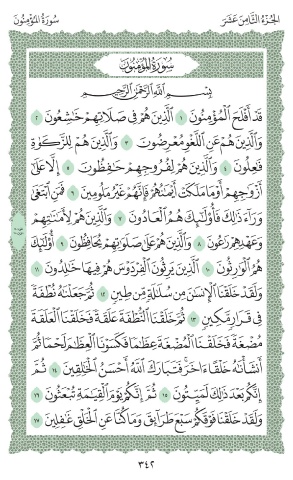 الجزء الثامن عشر
سورة المؤمنون
سُورَةُ المُؤْمِنُونَ
بِسْمِ اللَّهِ الرَّحْمَٰنِ الرَّحِيمِ
قَدْ أَفْلَحَ الْمُؤْمِنُونَ ١ الَّذِينَ هُمْ فِي صَلَاتِهِمْ خَاشِعُونَ ٢
وَالَّذِينَ هُمْ عَنِ اللَّغْوِ مُعْرِضُونَ ٣ وَالَّذِينَ هُمْ لِلزَّكَوٰةِ
فَاعِلُونَ ٤ وَالَّذِينَ هُمْ لِفُرُوجِهِمْ حَافِظُونَ ٥ إِلَّا عَلَىٰ
أَزْوَاجِهِمْ أَوْ مَا مَلَكَتْ أَيْمَانُهُمْ فَإِنَّهُمْ غَيْرُ مَلُومِينَ ٦ فَمَنِ ابْتَغَىٰ
وَرَاءَ ذَٰلِكَ فَأُولَٰئِكَ هُمُ الْعَادُونَ ٧ وَالَّذِينَ هُمْ لِأَمَانَاتِهِمْ
وَعَهْدِهِمْ رَاعُونَ ٨ وَالَّذِينَ هُمْ عَلَىٰ صَلَوَاتِهِمْ يُحَافِظُونَ ٩ أُولَٰئِكَ
هُمُ الْوَارِثُونَ ١٠ الَّذِينَ يَرِثُونَ الْفِرْدَوْسَ هُمْ فِيهَا خَالِدُونَ ١١
وَلَقَدْ خَلَقْنَا الْإِنسَانَ مِن سُلَالَةٍ مِّن طِينٍ ١٢ ثُمَّ جَعَلْنَاهُ نُطْفَةً
فِي قَرَارٍ مَّكِينٍ ١٣ ثُمَّ خَلَقْنَا النُّطْفَةَ عَلَقَةً فَخَلَقْنَا الْعَلَقَةَ
مُضْغَةً فَخَلَقْنَا الْمُضْغَةَ عِظَامًا فَكَسَوْنَا الْعِظَامَ لَحْمًا ثُمَّ
أَنشَأْنَاهُ خَلْقًا آخَرَ فَتَبَارَكَ اللَّهُ أَحْسَنُ الْخَالِقِينَ ١٤ ثُمَّ
إِنَّكُم بَعْدَ ذَٰلِكَ لَمَيِّتُونَ ١٥ ثُمَّ إِنَّكُمْ يَوْمَ الْقِيَامَةِ تُبْعَثُونَ ١٦
وَلَقَدْ خَلَقْنَا فَوْقَكُمْ سَبْعَ طَرَائِقَ وَمَا كُنَّا عَنِ الْخَلْقِ غَافِلِينَ ١٧
٣٤٢